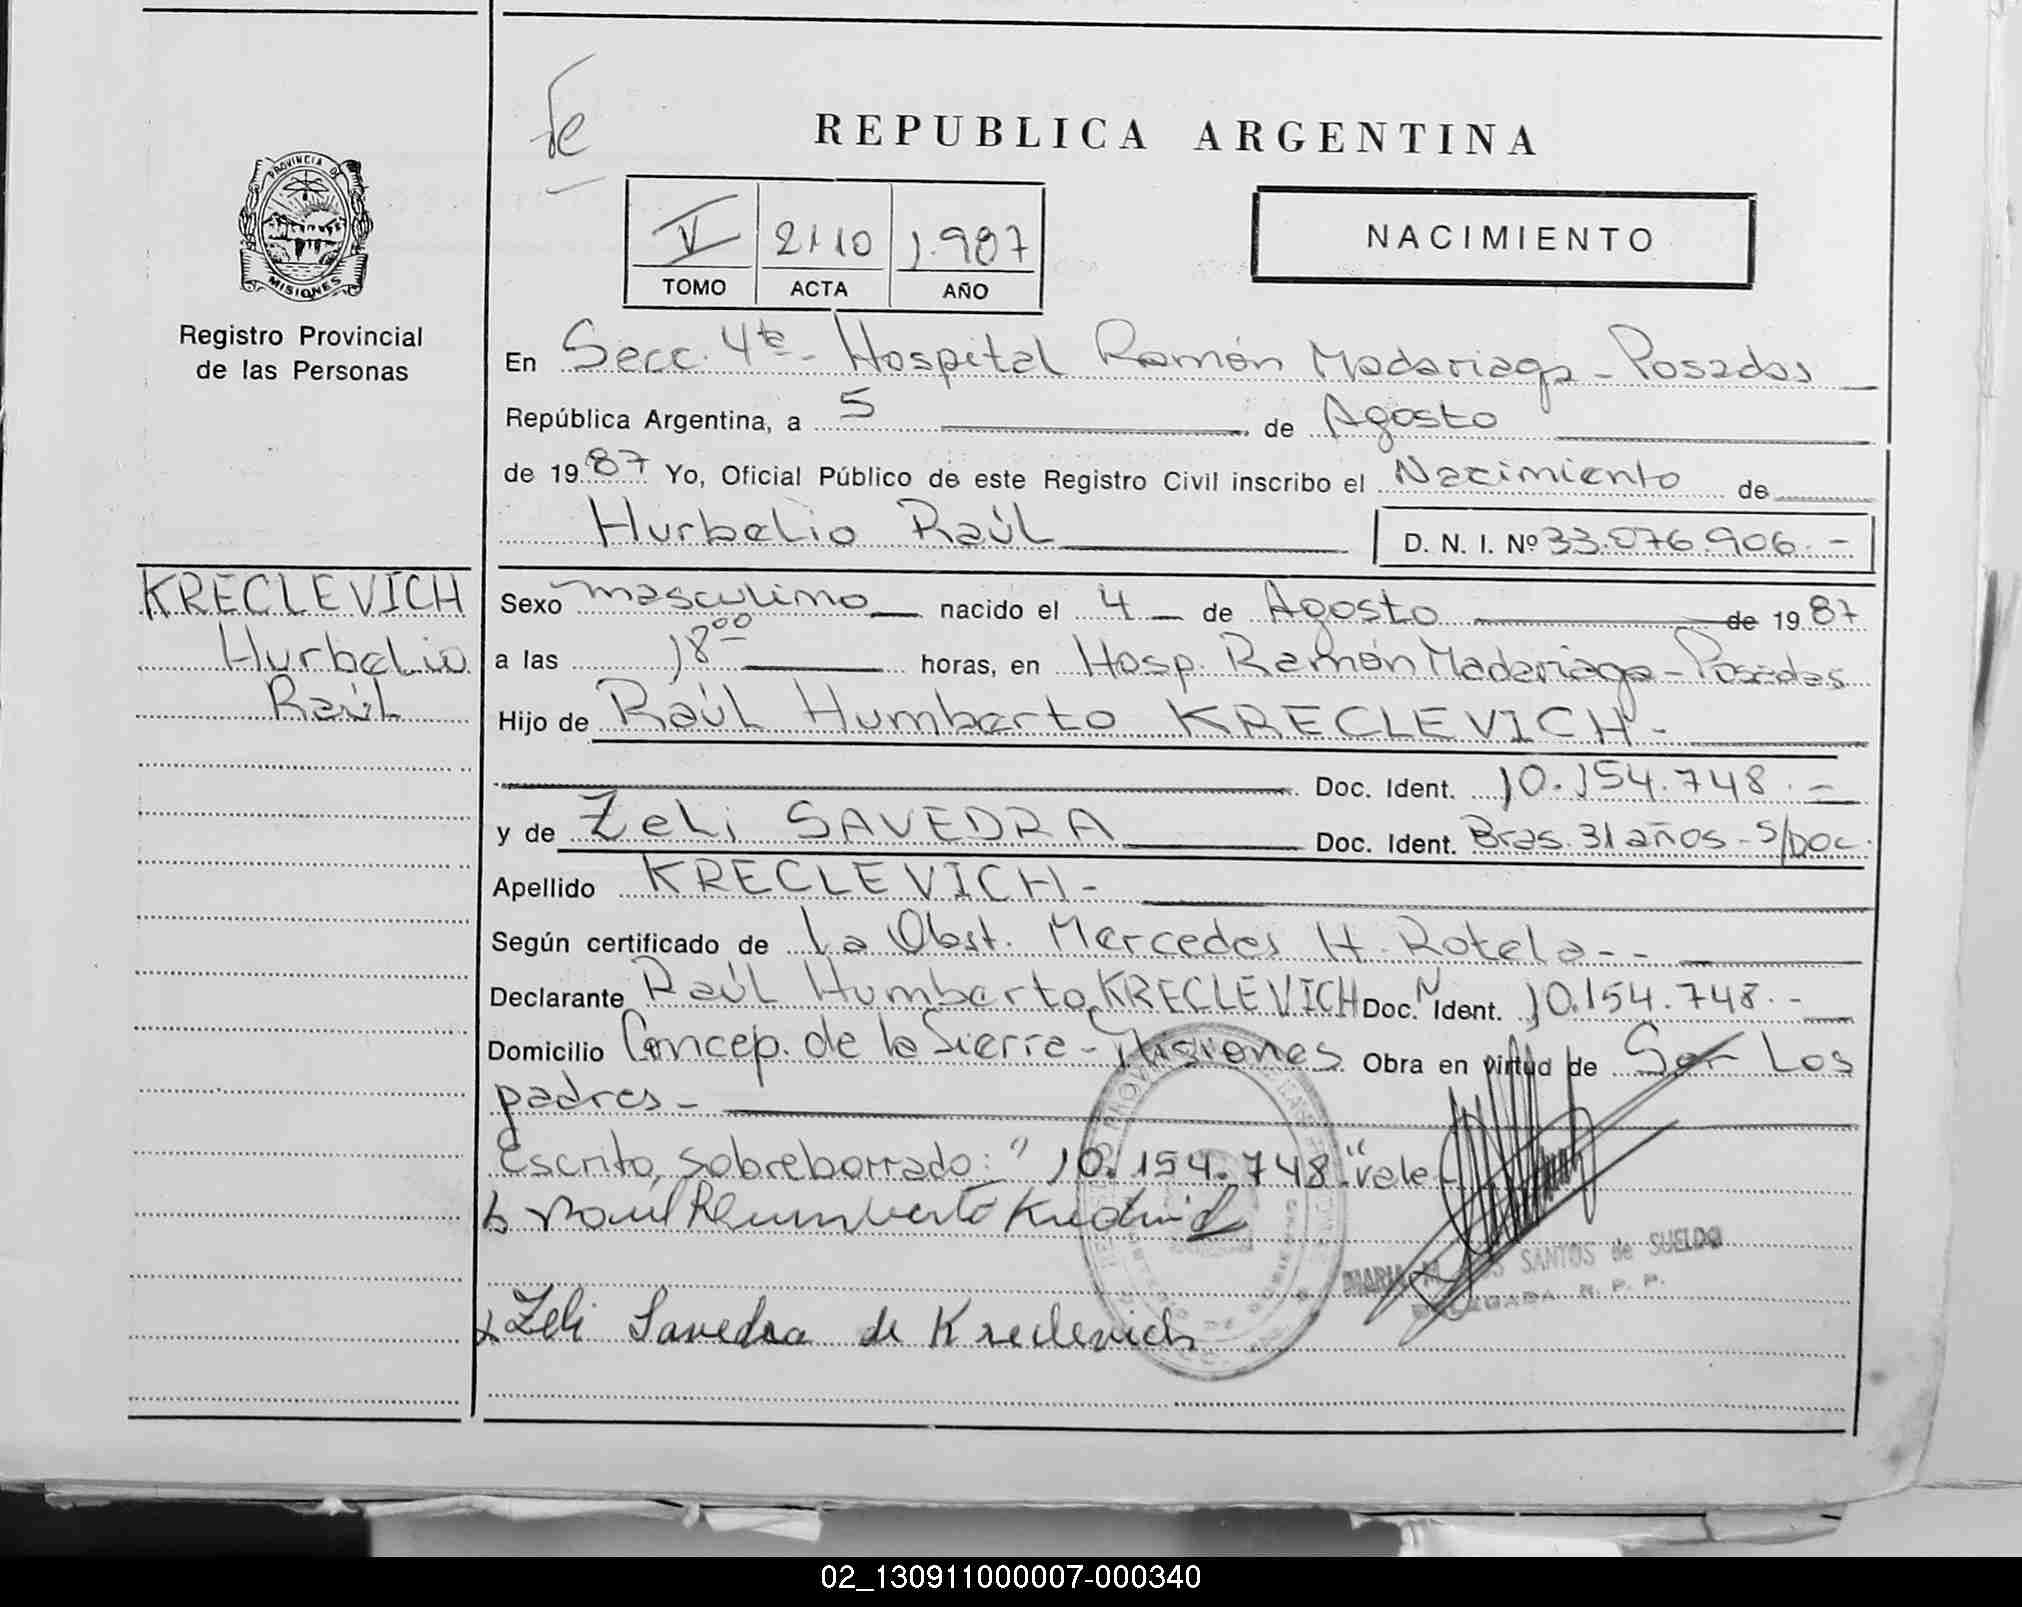 Fe
REPUBLICA ARGENTINA
V 2110 1.987
TOMO ACTA AÑO
NACIMIENTO
PROVINCIA DE
MISIONES
Registro Provincial
de las Personas
En Secc. 4ta - Hospital Ramón Madariaga - Posadas
República Argentina, a 5 de Agosto
de 19 87 Yo, Oficial Público de este Registro Civil inscribo el Nacimiento de
Hurbelio Raúl
D. N. I. Nº 33.076.906.-
KRECLEVICH
Hurbelio
Raúl
Sexo masculino nacido el 4 de Agosto de 19 87
a las 18 00 horas, en Hosp. Ramón Madariaga - Posadas
Hijo de Raúl Humberto KRECLEVICH -
Doc. Ident. 10.154.748.-
y de Zeli SAVEDRA Doc. Ident. Bras. 31 años - S/DOC.
Apellido KRECLEVICH -
Según certificado de La Obst. Mercedes H. Rotela - -
Declarante Raúl Humberto KRECLEVICH Doc. Ident. 10.154.748.-
Domicilio Concep. de la Sierra - Misiones Obra en virtud de Ser Los
padres -
Escrito, sobreborrado: "10.154.748" vale
Raúl Humberto
SANTOS de SUELDO
DELEGADA R. P. P.
Zeli Savedra de Kreclevich
02_130911000007-000340